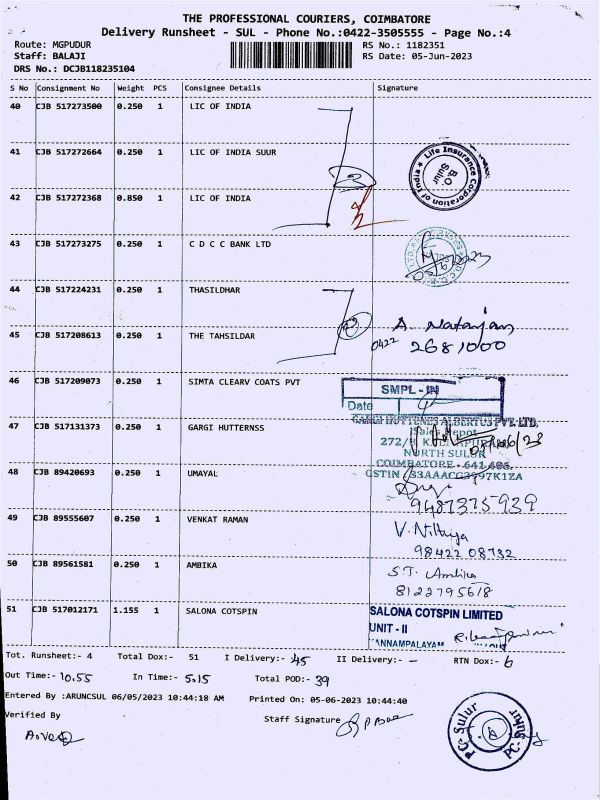 THE PROFESSIONAL COURIERS, COIMBATORE
Delivery Runsheet - SUL - Phone No.:0422-3505555 - Page No.:4
Route: MGPUDUR RS No.: 1182351
Staff: BALAJI RS Date: 05-Jun-2023
DRS No.: DCJB118235104
S No Consignment No Weight PCS Consignee Details Signature
40 CJB 517273500 0.250 1 LIC OF INDIA
41 CJB 517272664 0.250 1 LIC OF INDIA SUUR
Life Insurance Corporation of India
B.O. Sulur
42 CJB 517272368 0.850 1 LIC OF INDIA
43 CJB 517273275 0.250 1 C D C C BANK LTD
44 CJB 517224231 0.250 1 THASILDHAR
A. Natarajan
45 CJB 517208613 0.250 1 THE TAHSILDAR
0422 2681000
46 CJB 517209073 0.250 1 SIMTA CLEARV COATS PVT
SMPL - IN
Date
47 CJB 517131373 0.250 1 GARGI HUTTERNSS
GARGI HUTTENES ALBERTUS PVT. LTD.
Sales Depot
272/
NORTH SULUR
COIMBATORE - 641
GSTIN
48 CJB 89420693 0.250 1 UMAYAL
9487375939
49 CJB 89555607 0.250 1 VENKAT RAMAN
V. Nithya
98422 08732
50 CJB 89561581 0.250 1 AMBIKA
S.T. Ambika
8122795618
51 CJB 517012171 1.155 1 SALONA COTSPIN
SALONA COTSPIN LIMITED
UNIT - II
ANNAMPALAYAM
Tot. Runsheet:- 4 Total Dox:- 51 I Delivery:- 45 II Delivery:- - RTN Dox:- 6
Out Time:- 10.55 In Time:- 5.15 Total POD:- 39
Entered By :ARUNCSUL 06/05/2023 10:44:18 AM Printed On: 05-06-2023 10:44:40
Verified By Staff Signature
PC-Sulur
PC-Sulur